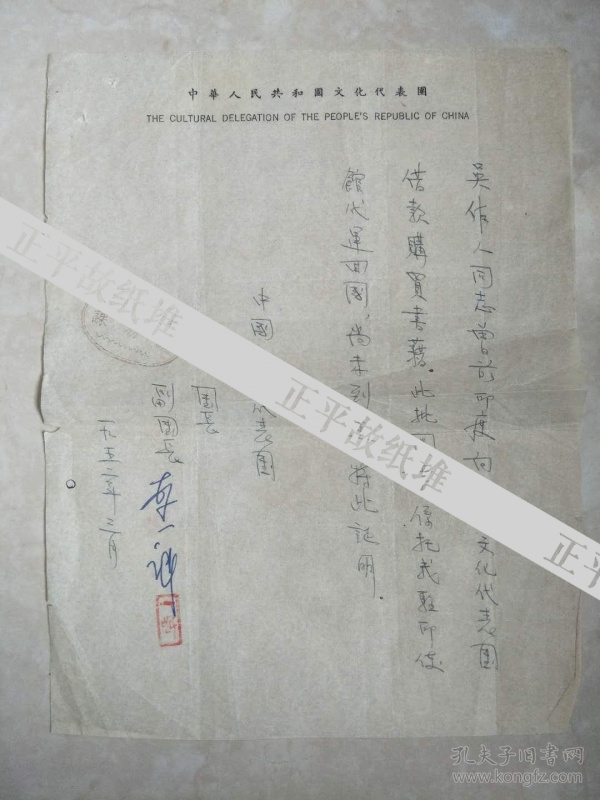 中華人民共和國文化代表團
THE CULTURAL DELEGATION OF THE PEOPLE'S REPUBLIC OF CHINA
吳作人同志曾於印度向文化代表団
借款購買書籍．此批係托我駐印使
館代運回國，尚未到特此証明．
中國代表団
団長
副団長 李一氓
一九五二年三月
正平故纸堆
正平故纸堆
正平故纸堆
孔夫子旧书网
www.kongfz.com